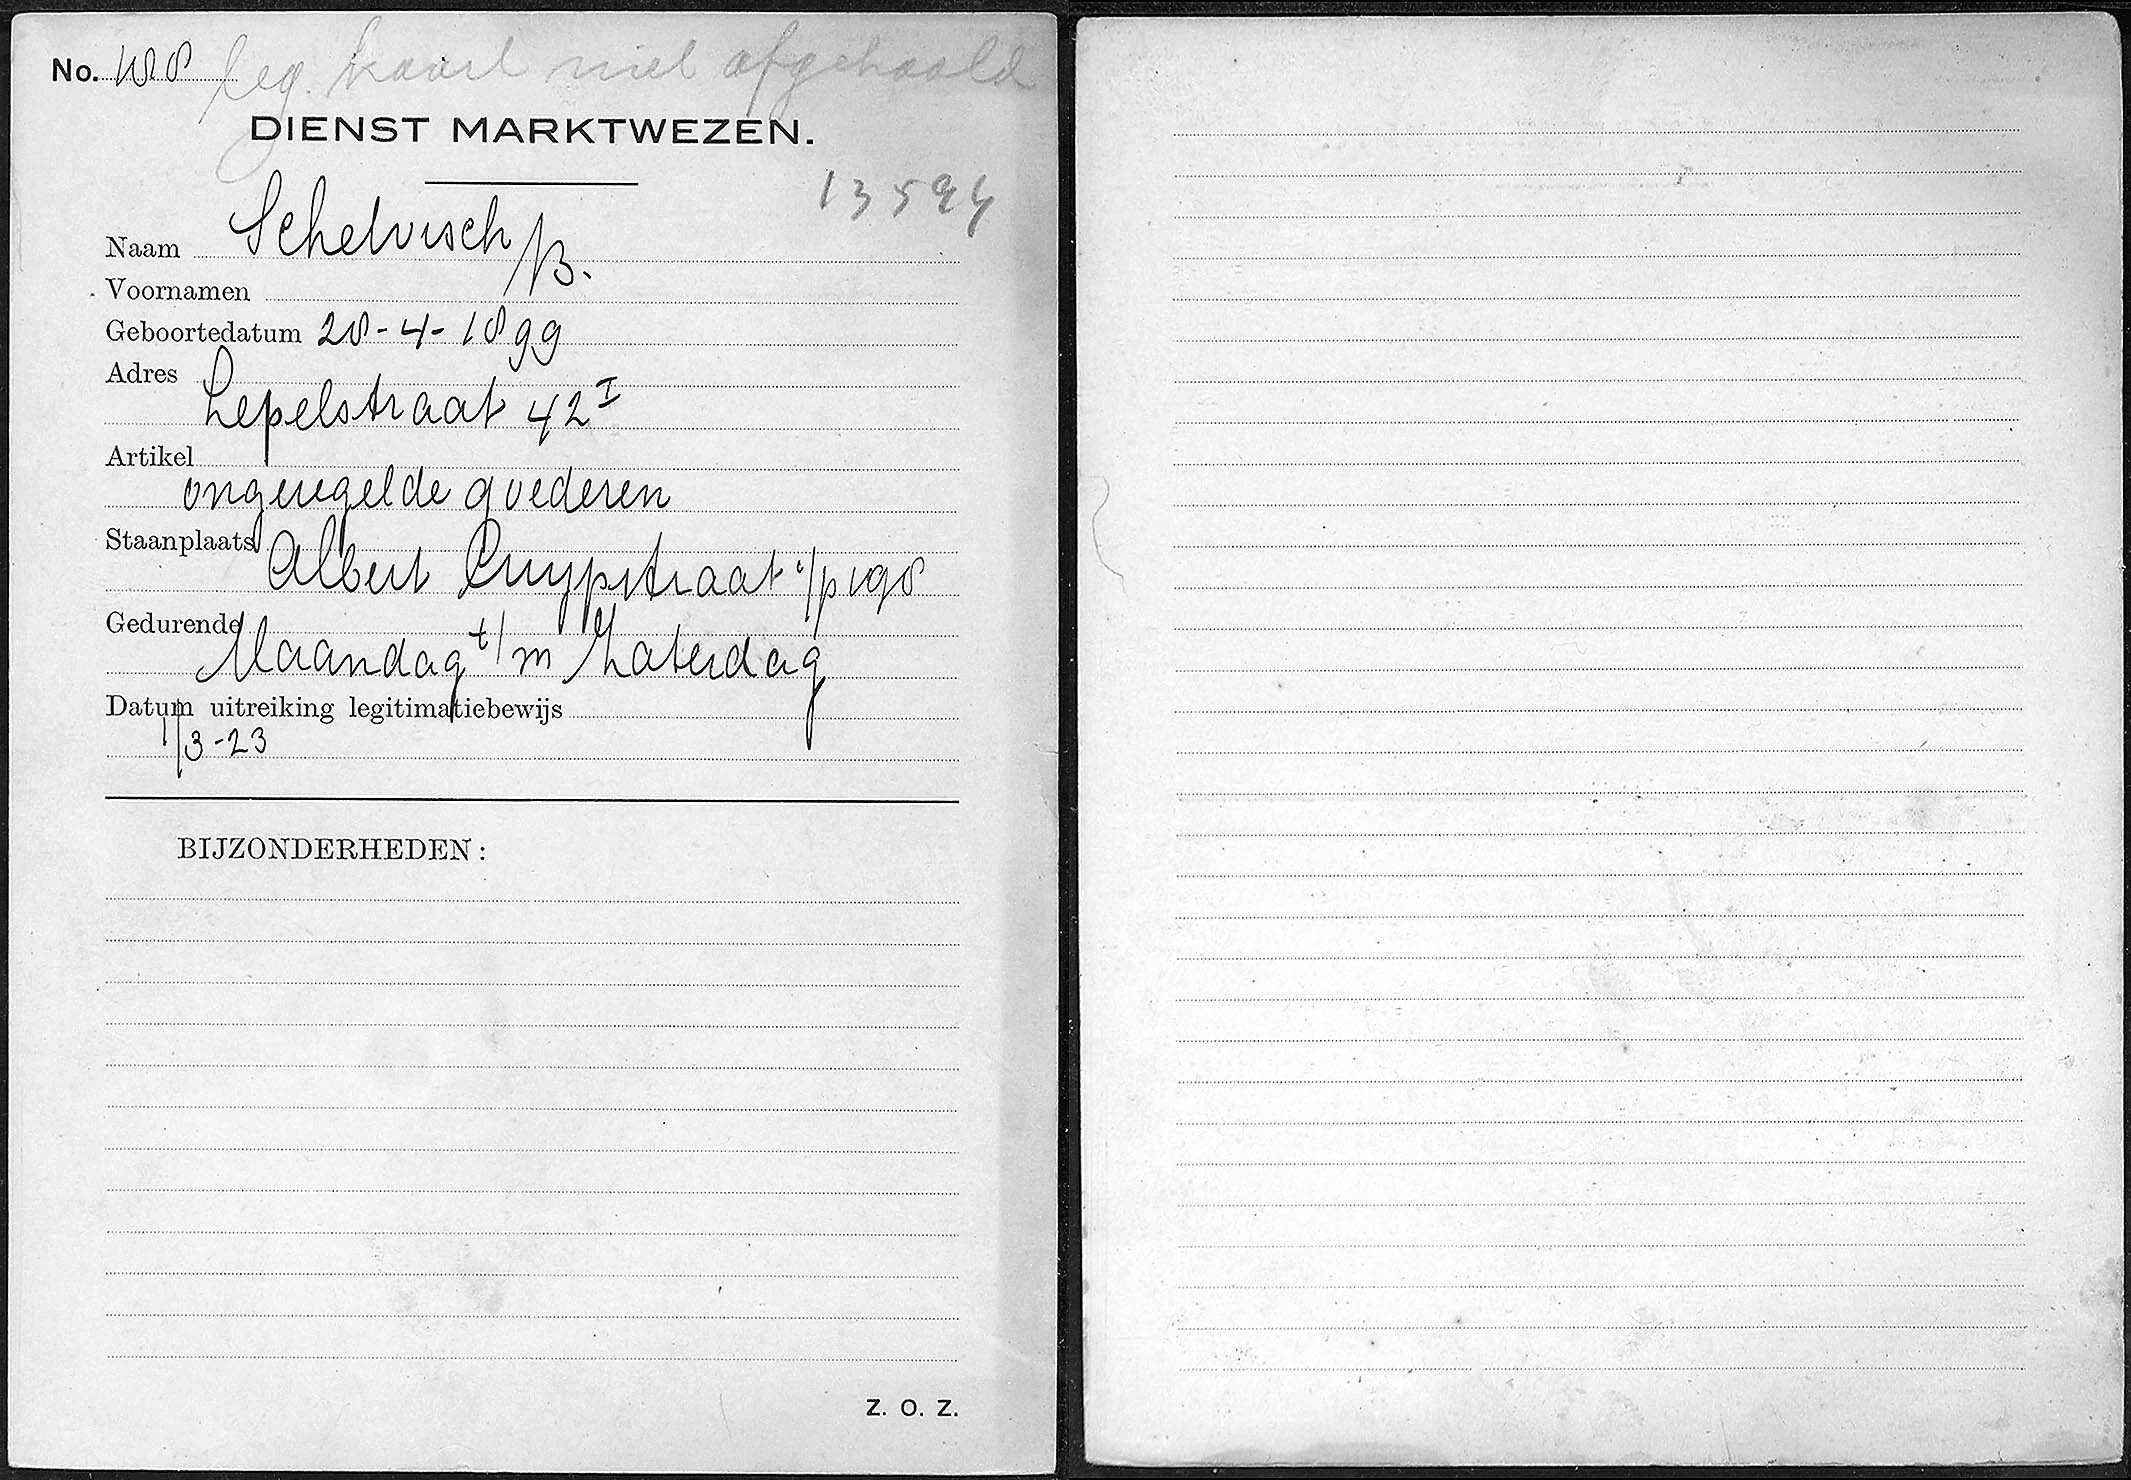 No. 188 leg. kaart niet afgehaald
DIENST MARKTWEZEN.
Naam Schelvisch
Voornamen B.
Geboortedatum 28-4-1899
Adres
Lepelstraat 42 I
Artikel
ongeregelde goederen
Staanplaats
Albert Cuypstraat /p 198
Gedurende
Maandag t/m Zaterdag
Datum uitreiking legitimatiebewijs
1/3-23
BIJZONDERHEDEN:
Z. O. Z.